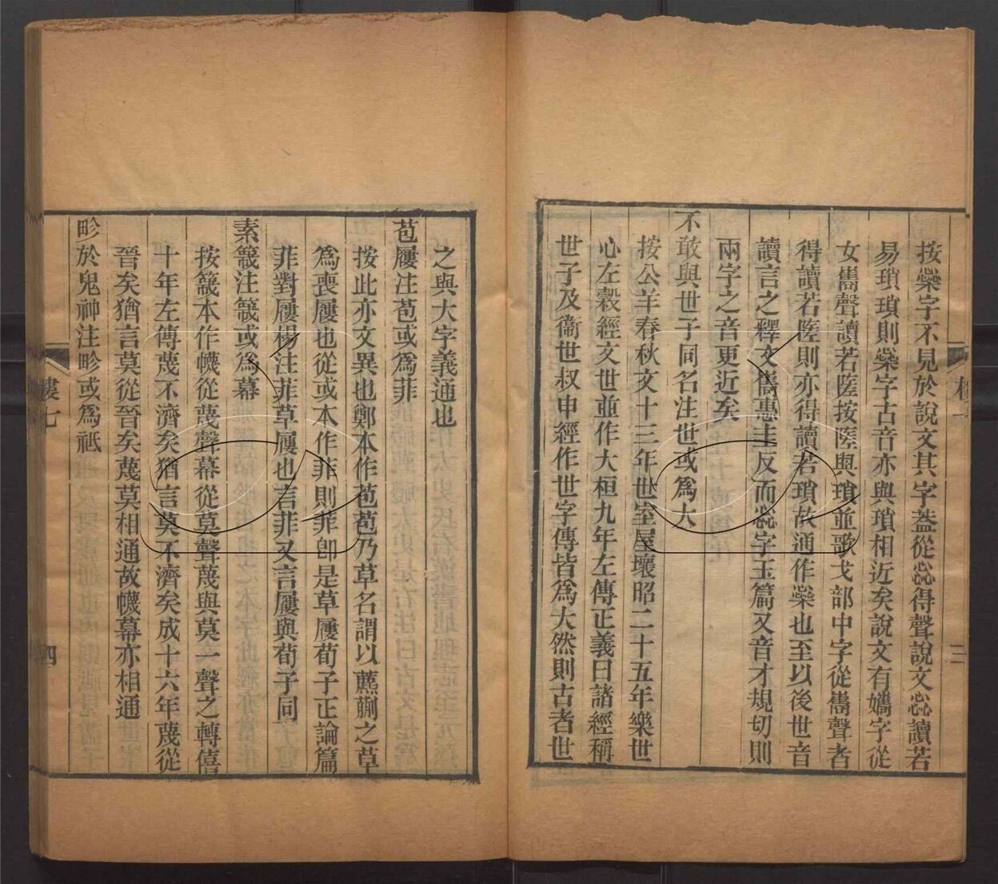 按橤字不見於說文其字葢從惢得聲說文惢讀若
易瑣瑣則橤字古音亦與瑣相近矣說文有孈字從
女巂聲讀若隓按隓與瑣並歌戈部中字從巂聲者
得讀若隓則亦得讀若瑣故通作橤也至以後世音
讀言之釋文巂惠圭反而惢字玉篇又音才規切則
兩字之音更近矣
不敢與世子同名注世或爲大
按公羊春秋文十三年世室屋壞昭二十五年樂世
心左穀經文世並作大桓九年左傳正義曰諸經稱
世子及衞世叔申經作世字傳皆爲大然則古者世
三
之與大字義通也
苞屨注苞或爲菲
按此亦文異也鄭本作苞苞乃草名謂以藨蒯之草
爲喪屨也從或本作菲則菲卽是草屨荀子正論篇
菲對屨楊注菲草屨也言菲又言屨與荀子同
素簚注簚或爲幕
按簚本作幭從蔑聲幕從莫聲蔑與莫一聲之轉僖
十年左傳蔑不濟矣猶言莫不濟矣成十六年蔑從
晉矣猶言莫從晉矣蔑莫相通故幭幕亦相通
畛於鬼神注畛或爲祗
樓七
四